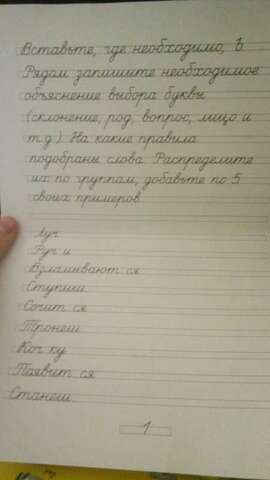 Вставьте, где необходимо, Ь.
Рядом запишите необходимое
объяснение выбора буквы
(склонение, род, вопрос, лицо и
т.д.). На какие правила
подобраны слова. Распределите
их по группам, добавьте по 5
своих примеров.
Луч
Руч и
Взламывают ся
Ступиш
Сочит ся
Тронеш
Коч ку
Появит ся
Станеш
1